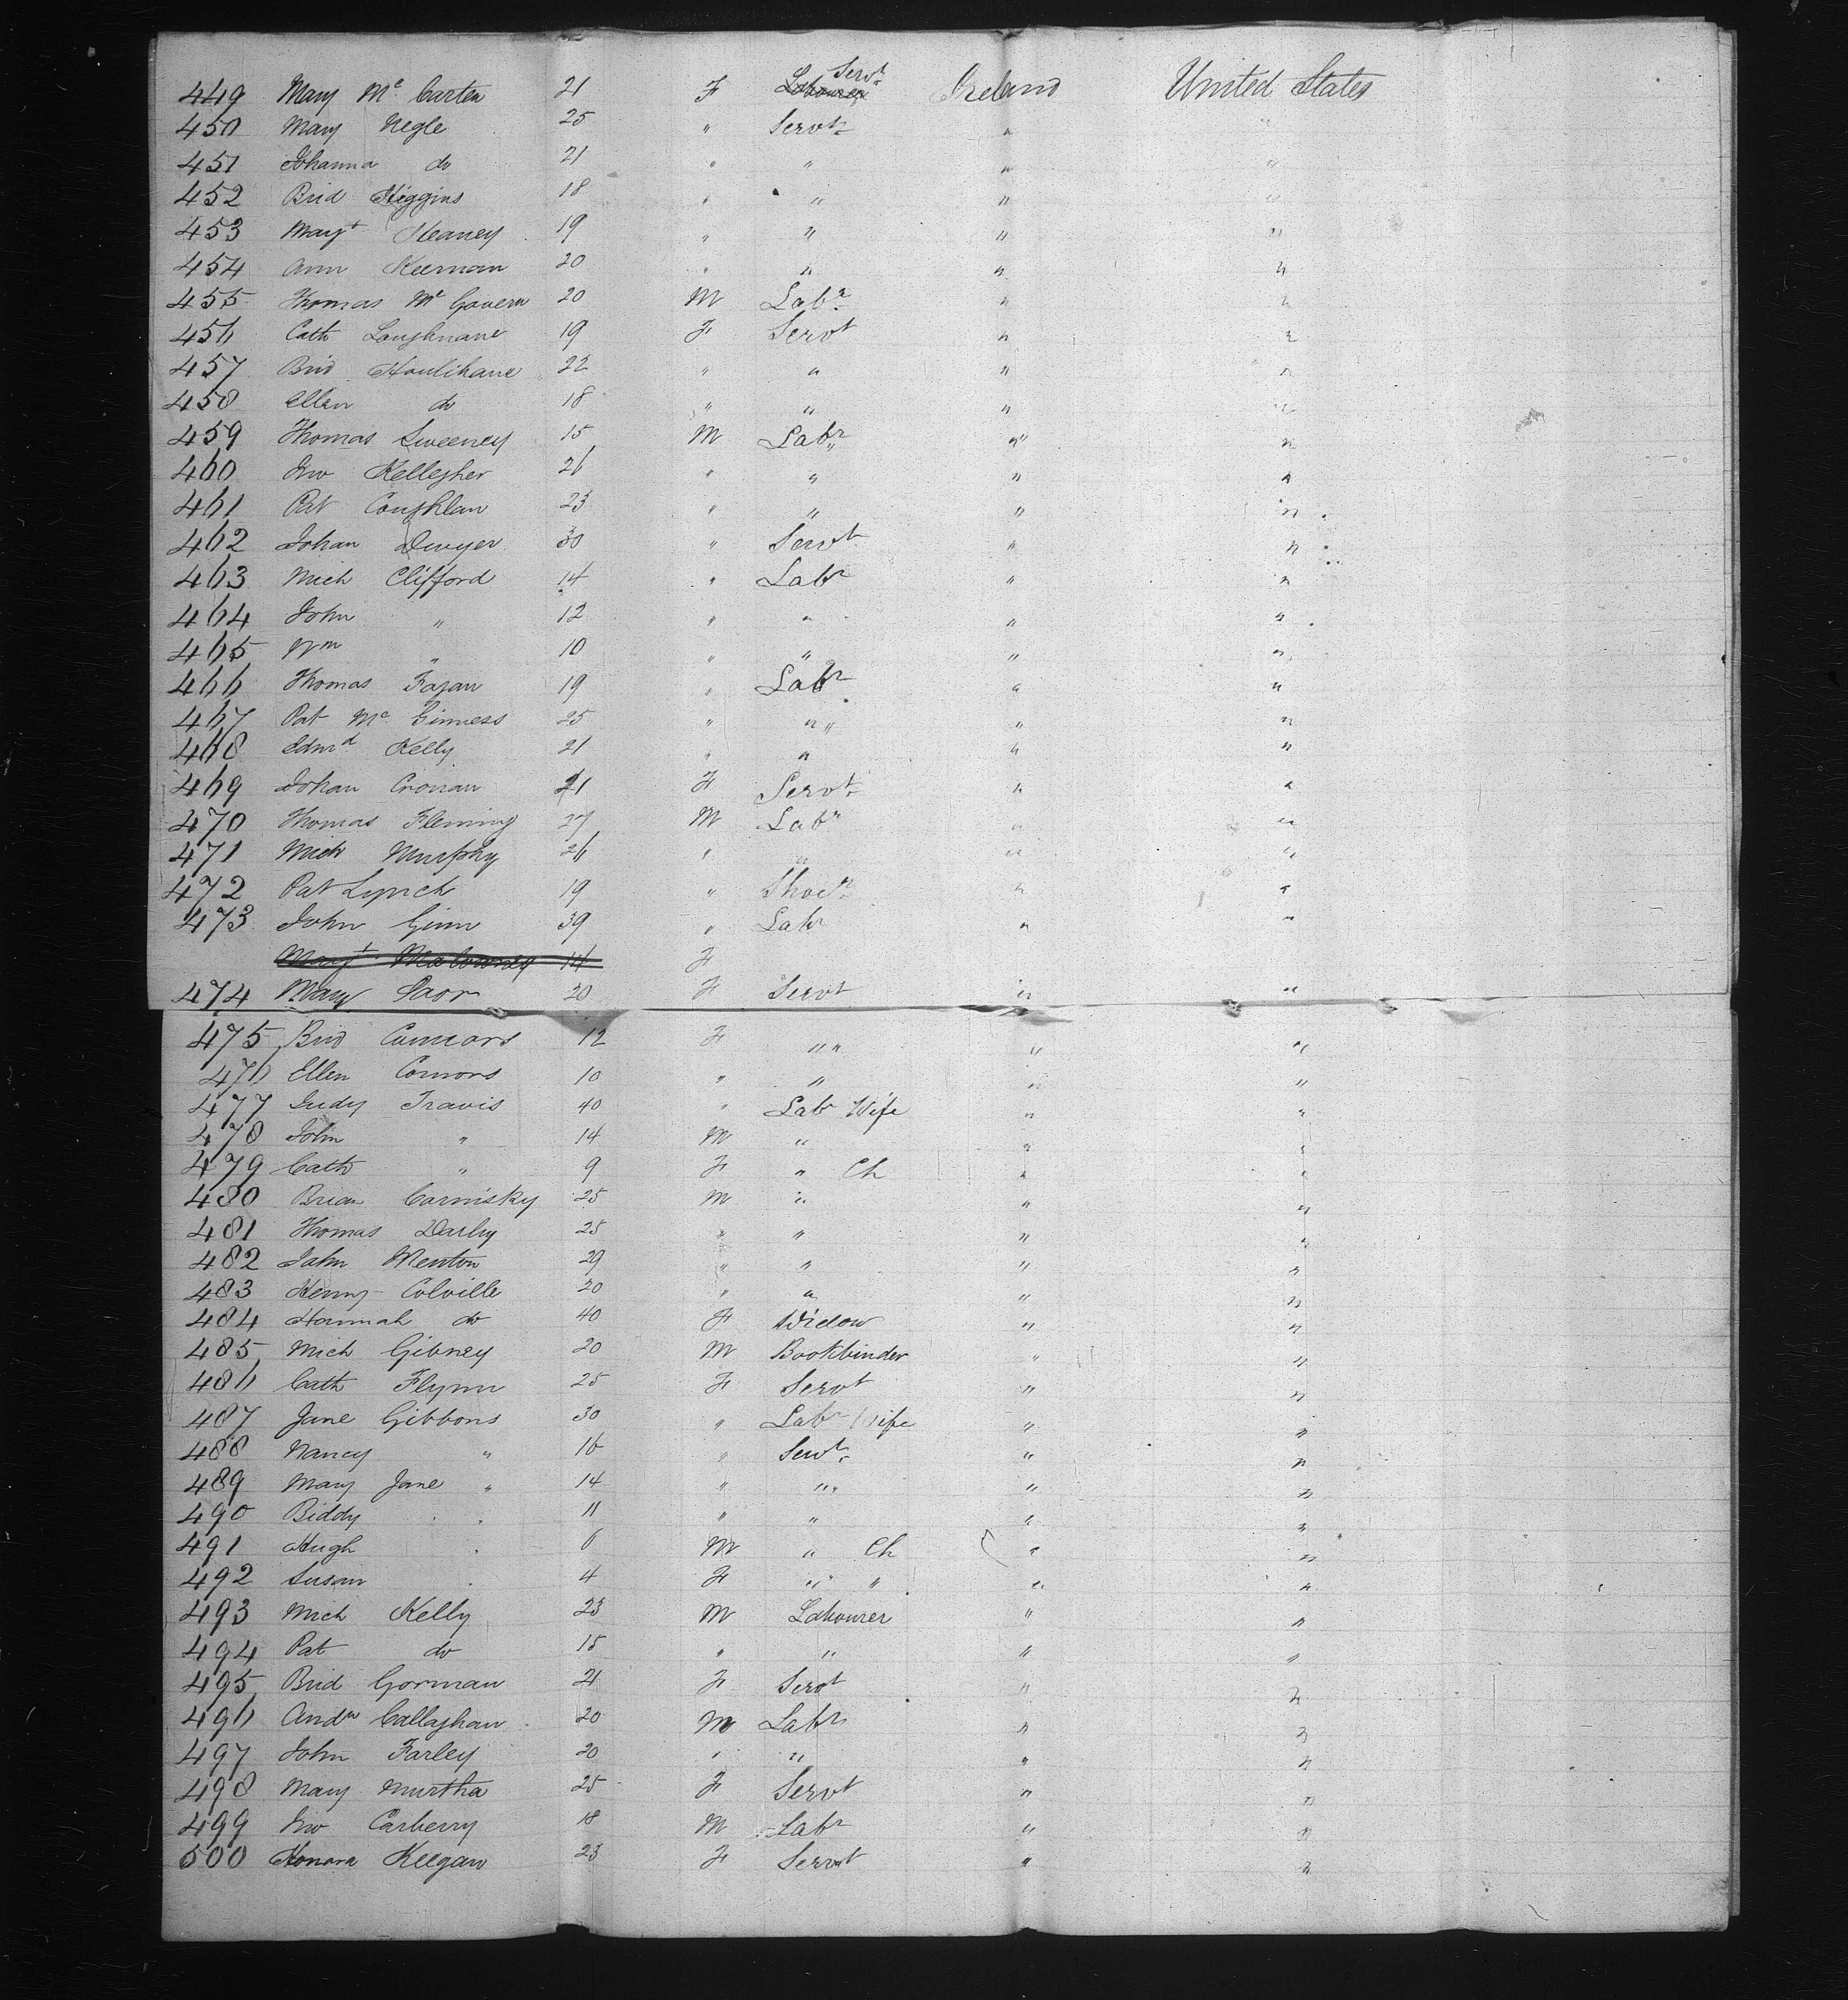 449 Mary Mc Carten 21 F Labourer Servt Ireland United States
450 Mary Negle 25 " Servt " "
451 Johanna do 21 " " " "
452 Brid Higgins 18 " " " "
453 Margt Heaney 19 " " " "
454 Ann Keernan 20 " " " "
455 Thomas Mc Govern 20 M Labr " "
456 Cath Loughnane 19 F Servt " "
457 Brid Houlihane 22 " " " "
458 Ellen do 18 " " " "
459 Thomas Sweeney 15 M Labr " "
460 Jno Kellegher 26 " " " "
461 Pat Coughlan 23 " " " "
462 Johan Dwyer 30 " Servt " "
463 Mich Clifford 14 " Labr " "
464 John " 12 " " " "
465 Wm " 10 " " " "
466 Thomas Fagan 19 " Labr " "
467 Pat Mc Ginness 25 " " " "
468 Edmd Kelly 21 " " " "
469 Johan Cronan 21 F Servt " "
470 Thomas Fleming 27 M Labr " "
471 Mich Murphy 26 " " " "
472 Pat Lynch 19 " Shoer " "
473 John Ginn 39 " Labr " "
Margt Malowney 14 F
474 Mary Saor 20 F Servt " "
475 Brid Connors 12 F " " " "
476 Ellen Connors 10 " " " "
477 Judy Travis 40 " Labr Wife " "
478 John " 14 M " " "
479 Cath " 9 F " Ch " "
480 Brian Cormisky 25 M " " "
481 Thomas Darby 25 " " " "
482 John Menton 29 " " " "
483 Henny Colville 20 " " " "
484 Hannah do 40 F Widow " "
485 Mich Gibney 20 M Bookbinder " "
486 Cath Flynn 25 F Servt " "
487 Jane Gibbons 30 " Labr Wife " "
488 Nancy " 16 " Servt " "
489 Mary Jane " 14 " " " "
490 Biddy " 11 " " " "
491 Hugh " 6 M " Ch " "
492 Susan " 4 F " " " "
493 Mich Kelly 23 M Labourer " "
494 Pat do 15 " " " "
495 Brid Gorman 21 F Servt " "
496 Andw Callaghan 20 M Labr " "
497 John Farley 20 " " " "
498 Mary Murtha 25 F Servt " "
499 Jno Carberry 18 M Labr " "
500 Honora Keegan 23 F Servt " "